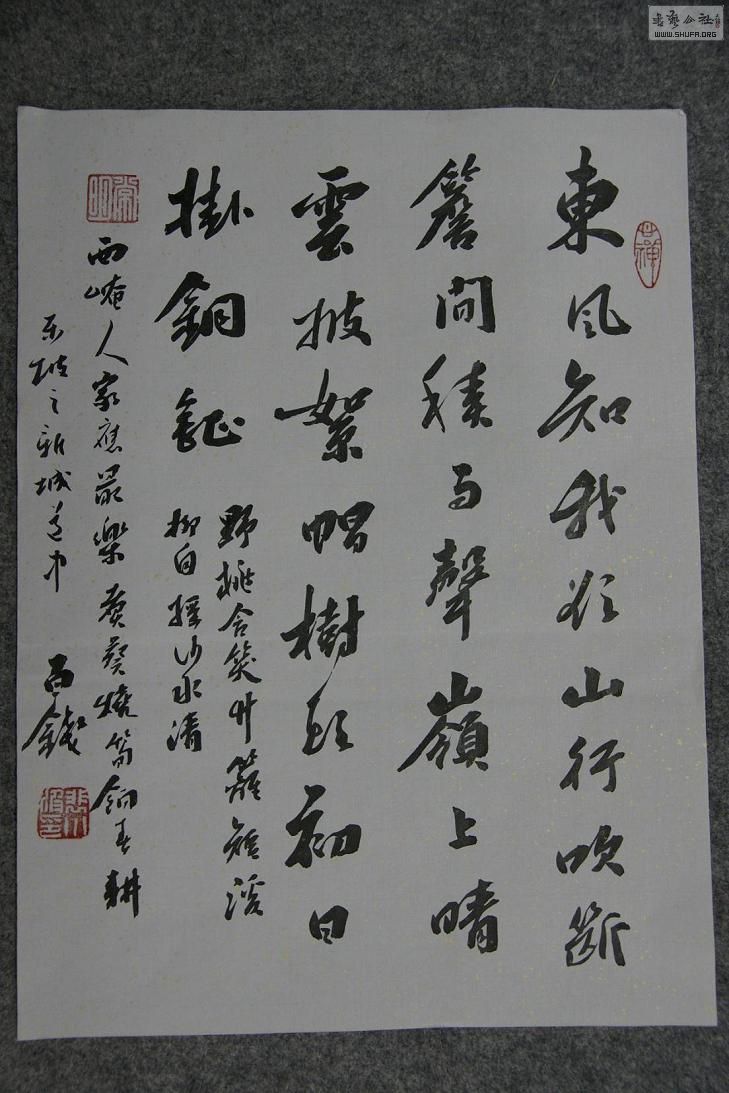 書藝公社
WWW.SHUFA.ORG
東風知我欲山行吹斷
簷間積雨聲嶺上晴
雲披絮帽樹頭初日
掛銅鉦
野桃含笑竹籬短溪
柳自搖沙水清
西崦人家應最樂煮葵燒筍餉春耕
东坡之新城道中